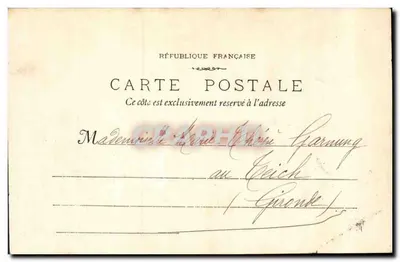 RÉPUBLIQUE FRANÇAISE
CARTE POSTALE
Ce côté est exclusivement reservé à l'adresse
Mademoiselle Garnung
au Teich
(Gironde)